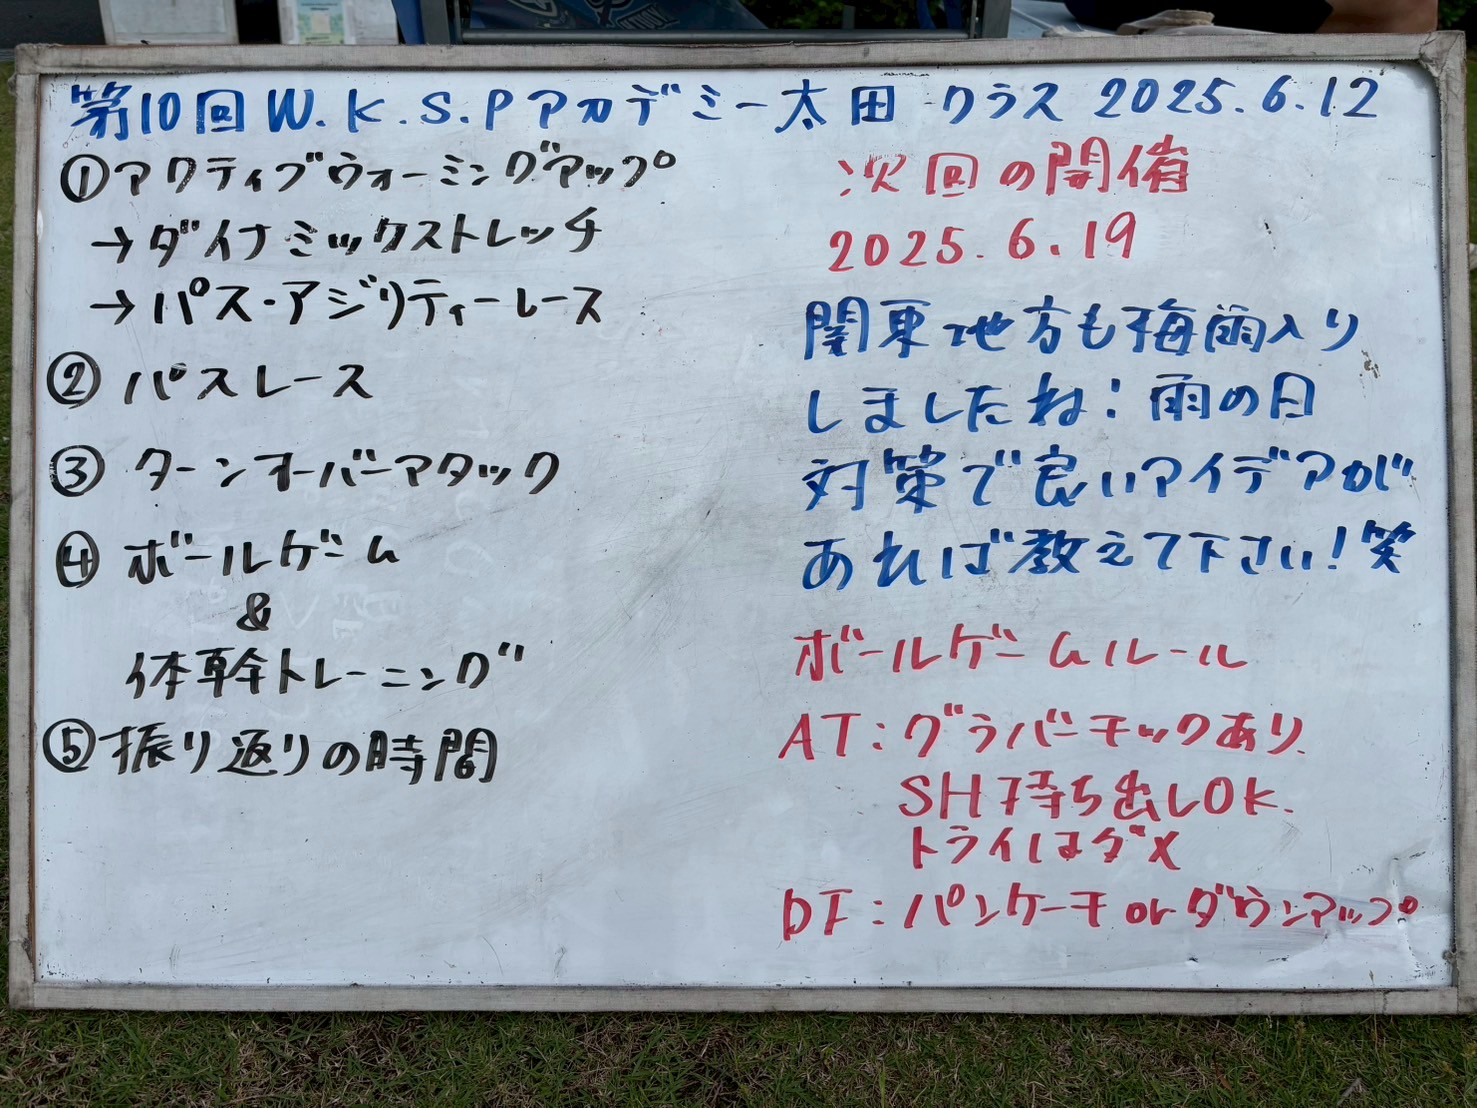 第10回W.K.S.Pアカデミー太田クラス 2025.6.12
①アクティブウォーミングアップ
→ダイナミックストレッチ
→パス・アジリティーレース
②パスレース
③ターンオーバーアタック
④ボールゲーム
&
体幹トレーニング
⑤振り返りの時間
次回の開催
2025.6.19
関東地方も梅雨入り
しましたね!雨の日
対策で良いアイデアが
あれば教えて下さい!笑
ボールゲームルール
AT:グラバーキックあり
SH持ち出しOK.
トライはダメ
DF:パンケーキorダウンアップ